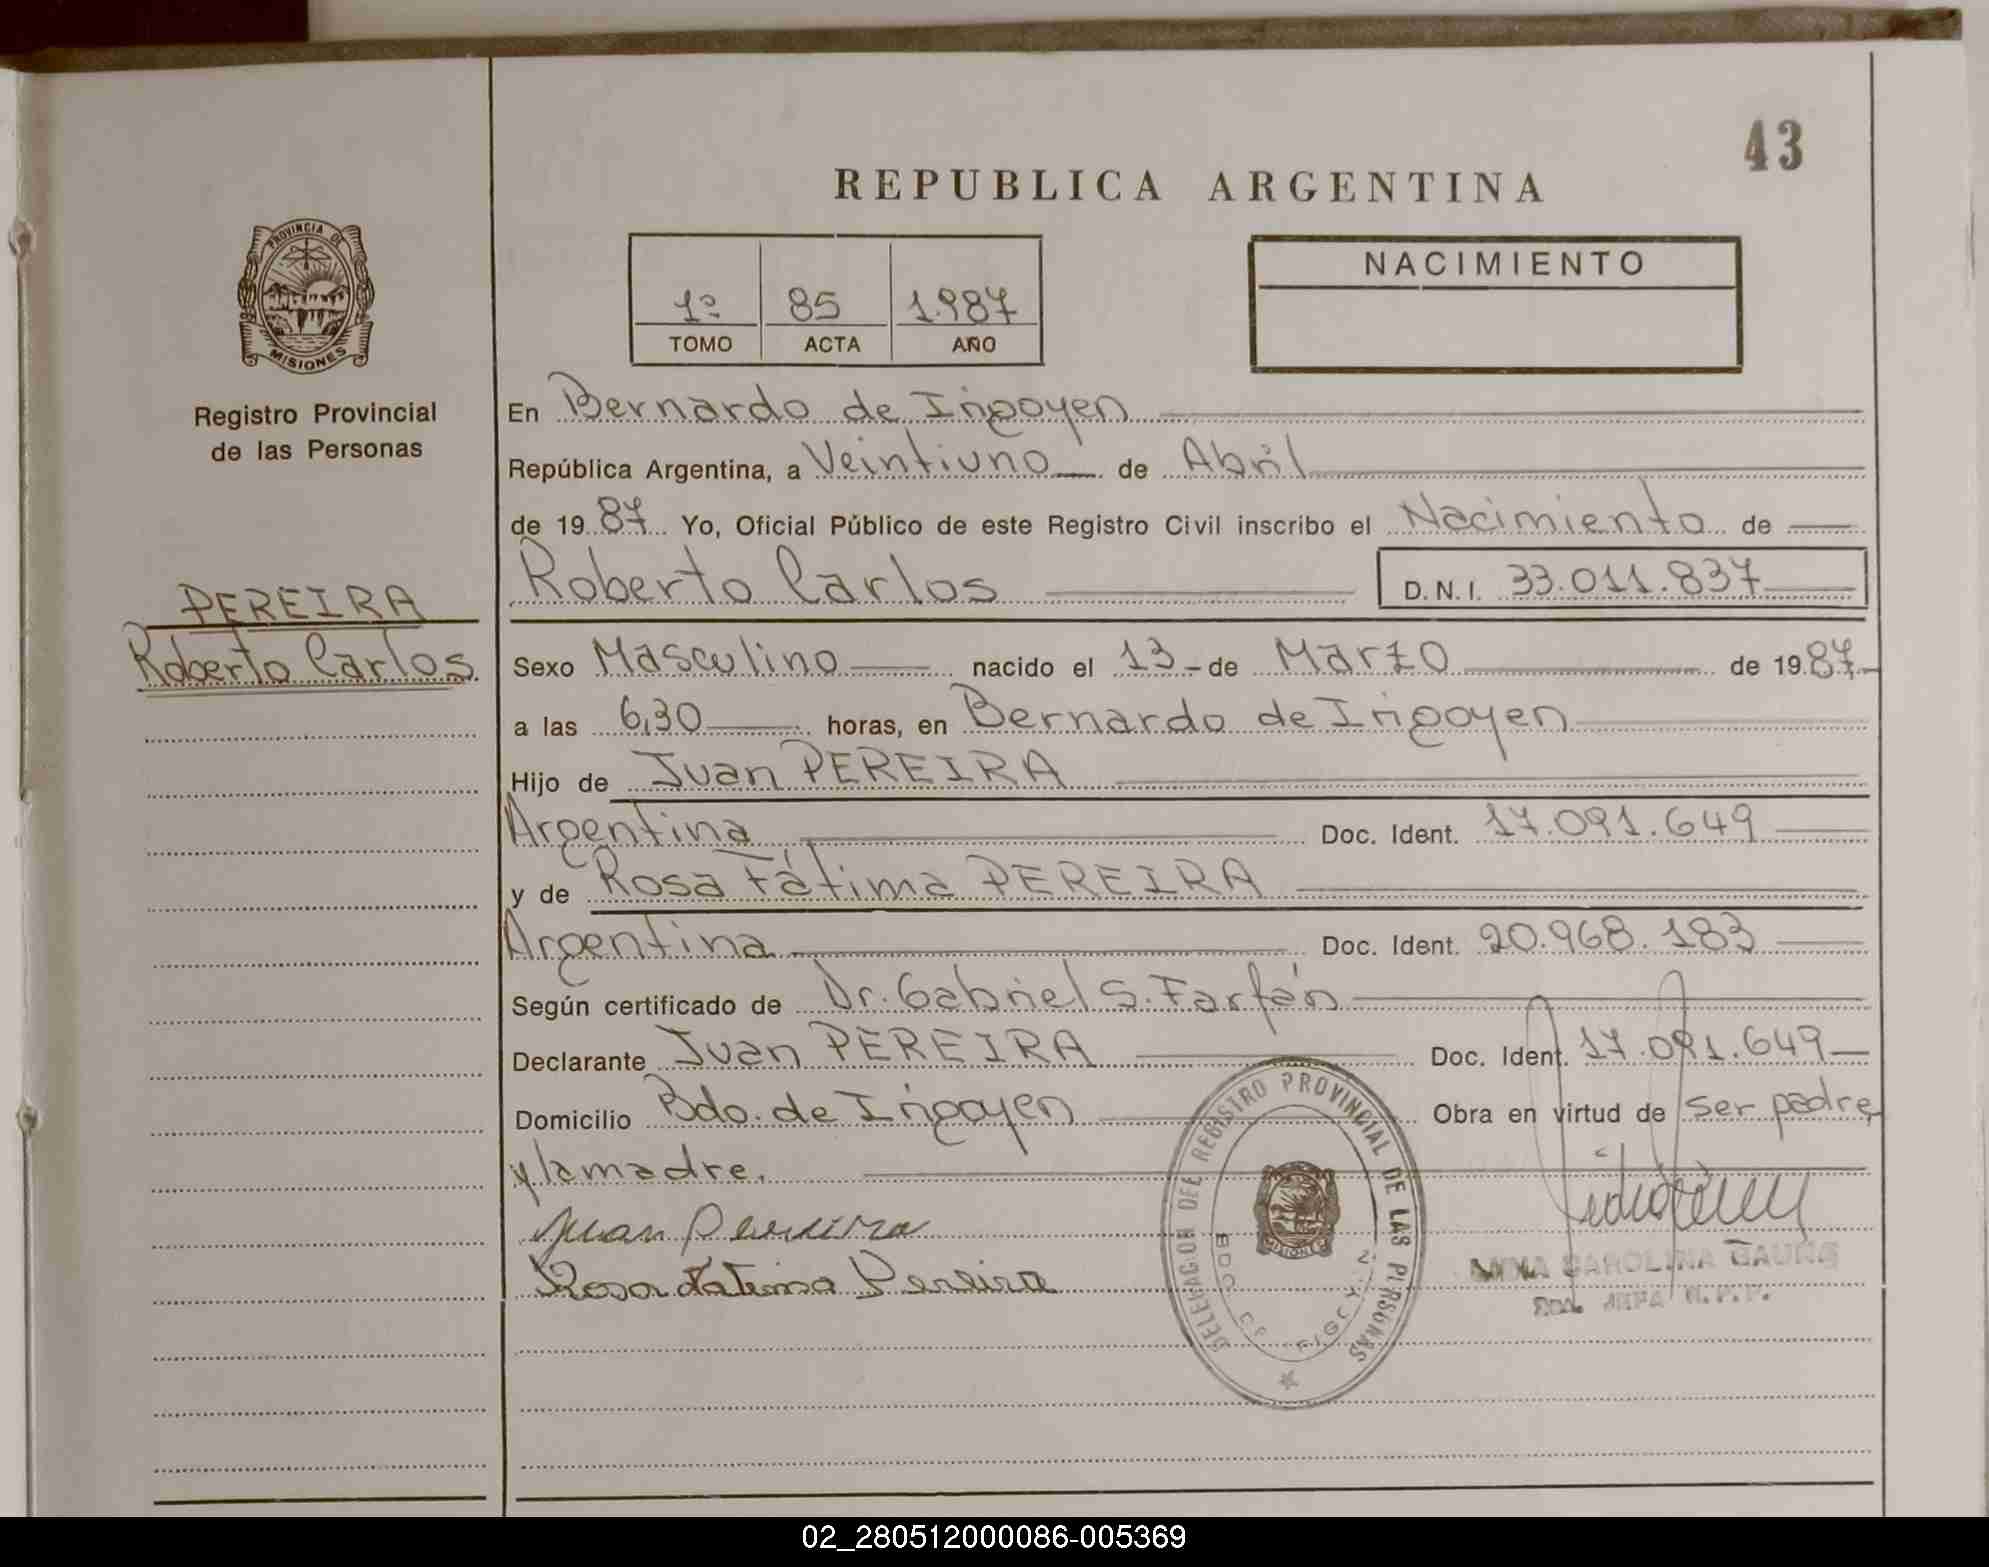 43
REPUBLICA ARGENTINA
PROVINCIA DE
MISIONES
Registro Provincial
de las Personas
PEREIRA
Roberto Carlos
1º 85 1.987
TOMO ACTA AÑO
NACIMIENTO
En Bernardo de Irigoyen
República Argentina, a Veintiuno de Abril
de 1987 Yo, Oficial Público de este Registro Civil inscribo el Nacimiento de
Roberto Carlos D.N.I. 33.011.837
Sexo Masculino nacido el 13 de Marzo de 1987
a las 6,30 horas, en Bernardo de Irigoyen
Hijo de Juan PEREIRA
Argentina Doc. Ident. 17.091.649
y de Rosa Fátima PEREIRA
Argentina Doc. Ident. 20.968.183
Según certificado de Dr. Gabriel S. Farfán
Declarante Juan PEREIRA Doc. Ident. 17.091.649
Domicilio Bdo. de Irigoyen Obra en virtud de ser padre
y la madre.
Juan Pereira
Rosa Fatima Pereira
DELEGACION DEL REGISTRO PROVINCIAL DE LAS PERSONAS
MISIONES
CAROLINA
02_280512000086-005369